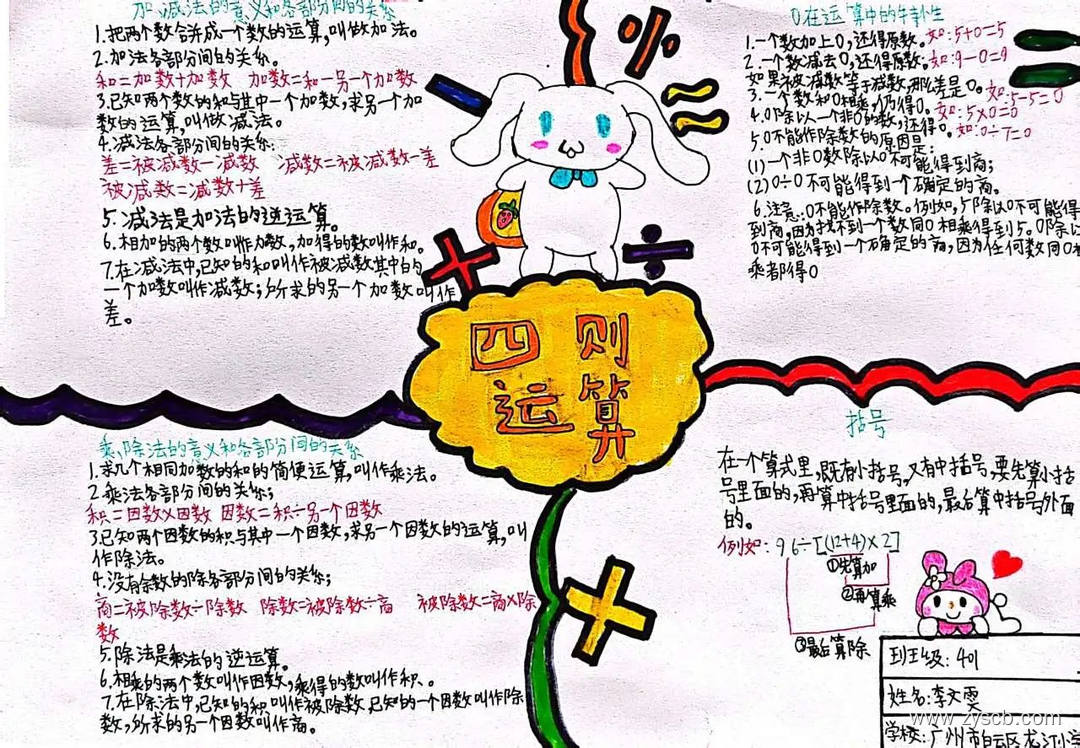 加、减法的意义和各部分间的关系
1.把两个数合并成一个数的运算,叫做加法。
2.加法各部分间的关系。
和=加数+加数 加数=和-另一个加数
3.已知两个数的和与其中一个加数,求另一个加
数的运算,叫做减法。
4.减法各部分间的关系:
差=被减数-减数 减数=被减数-差
被减数=减数+差
5.减法是加法的逆运算。
6.相加的两个数叫作加数,加得的数叫作和。
7.在减法中,已知的和叫作被减数其中的
一个加数叫作减数;所求的另一个加数叫作
差。
0在运算中的特性
1.一个数加上0,还得原数。如:5+0=5
2.一个数减去0,还得原数。如:9-0=9
如果被减数等于减数,那么差是0。如:5-5=0
3.一个数和0相乘,仍得0。如:5×0=0
4.0除以一个非0的数,还得0。如:0÷7=0
5.0不能作除数的原因是:
(1)一个非0数除以0不可能得到商;
(2)0÷0不可能得到一个确定的商。
6.注意:0不能作除数。例如,5除以0不可能得
到商,因为找不到一个数同0相乘得到5。0除以
0不可能得到一个确定的商,因为任何数同0相
乘都得0
四则
运算
乘、除法的意义和各部分间的关系
1.求几个相同加数的和的简便运算,叫作乘法。
2.乘法各部分间的关系;
积=因数×因数 因数=积÷另一个因数
3.已知两个因数的积与其中一个因数,求另一个因数的运算,叫
作除法。
4.没有余数的除各部分间的关系;
商=被除数÷除数 除数=被除数÷商 被除数=商×除
数
5.除法是乘法的逆运算。
6.相乘的两个数叫作因数,乘得的数叫作积、。
7.在除法中,已知的积叫作被除数,已知的一个因数叫作除
数,所求的另一个因数叫作商。
括号
在一个算式里,既有小括号,又有中括号,要先算小括
号里面的,再算中括号里面的,最后算中括号外面
的。
例如:96÷[(12+4)×2]
①先算加
②再算乘
③最后算除
班级:401
姓名:李文雯
学校:广州市白云区龙江小学
www.zyscb.com